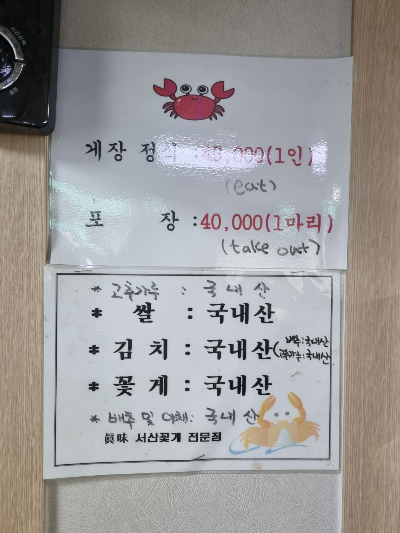 게장 정식 :43,000(1인)
(eat)
포 장 :40,000(1마리)
(take out)
* 고추가루 : 국내산
* 쌀 : 국내산
* 김치 : 국내산(배추:국내산
고추가루:국내산)
* 꽃게 : 국내산
* 배추 및 야채: 국내산
眞味 서산꽃게 전문점